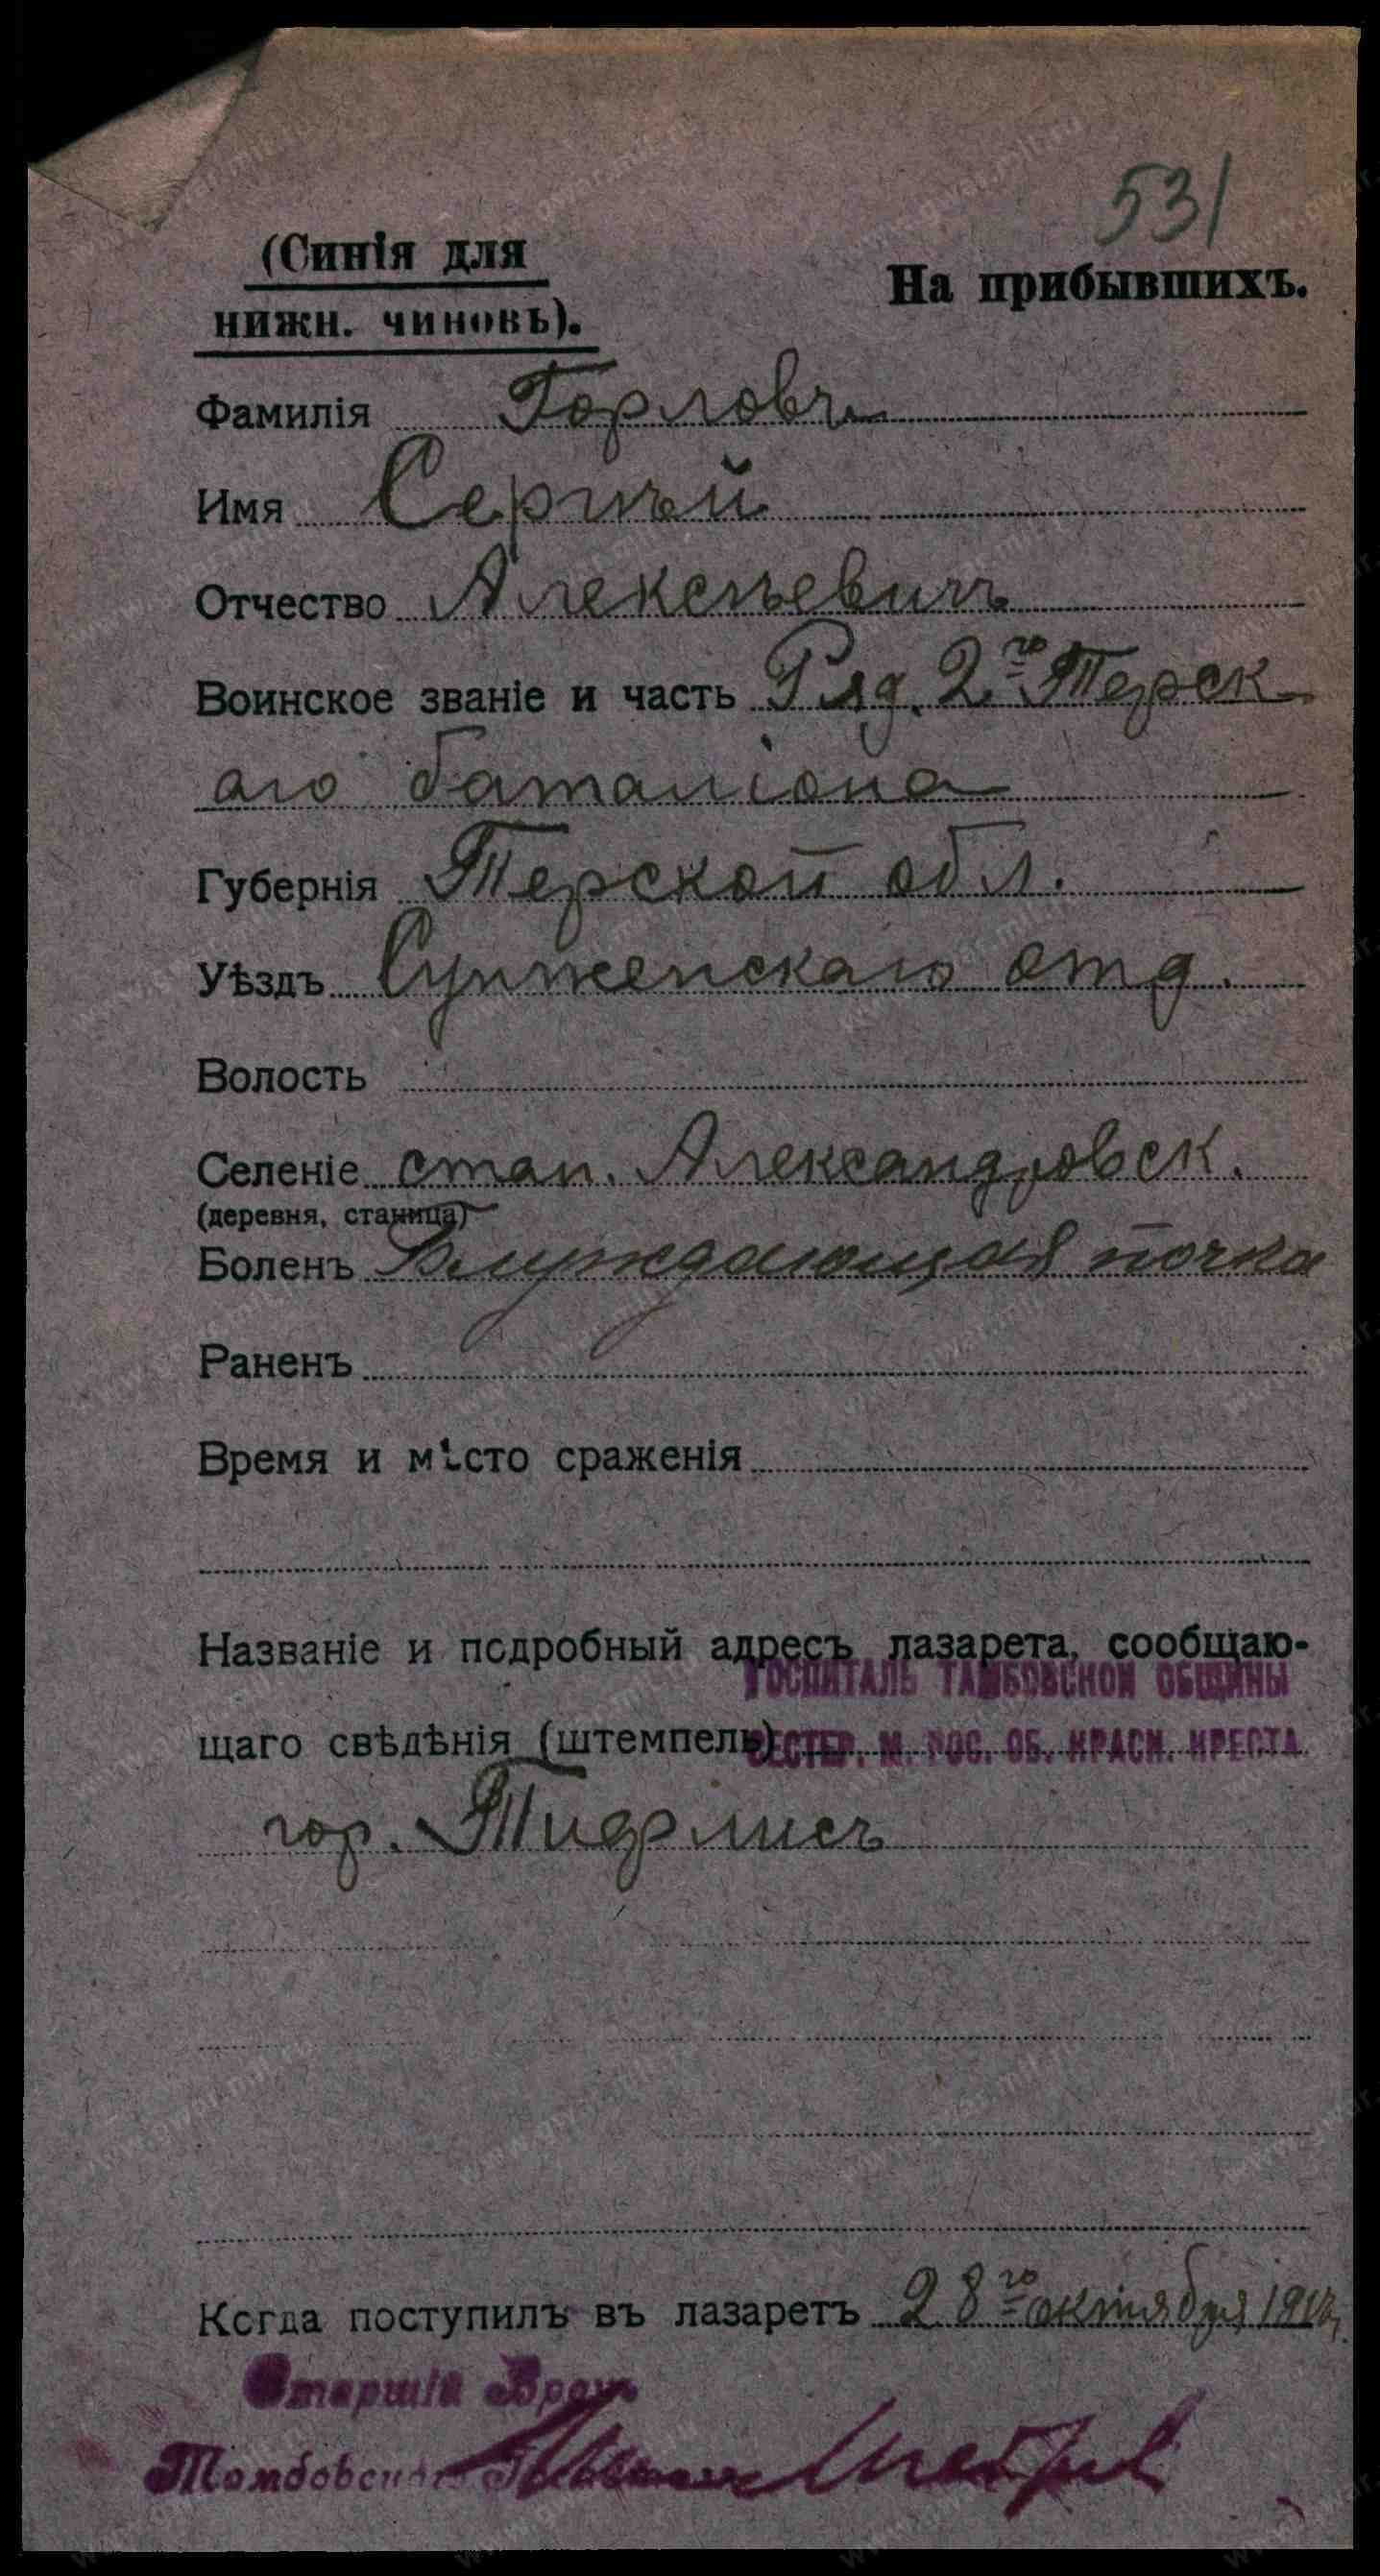 531
(Синія для
На прибывшихъ.
нижн. чиновъ).
Фамилія Горловъ
Имя Сергѣй
Отчество Алексѣевичъ
Воинское званіе и часть Ряд. 2го Терск
аго баталіона
Губернія Терской обл.
Уѣздъ Сунженскаго отд.
Волость
Селеніе стан. Александровск.
(деревня, станица)
Боленъ Блуждающая почка
Раненъ
Время и мѣсто сраженія
Названіе и подробный адресъ лазарета, сообщаю-
ГОСПИТАЛЬ ТАМБОВСКОЙ ОБЩИНЫ
щаго свѣдѣнія (штемпель)
СЕСТЕР. М. РОС. ОБ. КРАСН. КРЕСТА
гор. Тифлисъ
Когда поступилъ въ лазаретъ 28го октября
Старшій Врачъ
Тамбовскаго